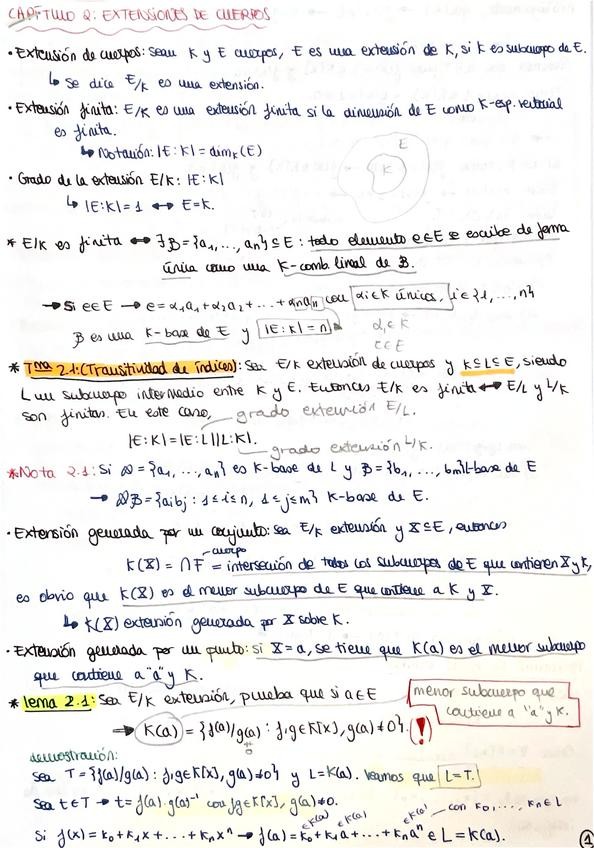 CAPÍTULO 2: EXTENSIONES DE CUERPOS
· Extensión de cuerpos: Sean K y E cuerpos, E es una extensión de K, si K es subcuerpo de E.
↳ Se dice E/K es una extensión.
· Extensión finita: E/K es una extensión finita si la dimensión de E como K-esp. vectorial
es finita.
↳ Notación: |E:K| = dim_K(E)
E
K
· Grado de la extensión E/K: |E:K|
↳ |E:K| = 1 ↔ E=K.
* E/K es finita ↔ ∃ B = {a₁, ..., aₙ} ⊆ E : todo elemento e∈E se escribe de forma
única como una K-comb. lineal de B.
→ Si e∈E → e = α₁a₁ + α₂a₂ + ... + αₙaₙ con αi∈K únicos, i∈{1, ..., n}
B es una K-base de E y |E:K| = n
αᵢ∈K
e∈E
* Tma 2.1: (Transitividad de índices): Sea E/K extensión de cuerpos y K⊆L⊆E, siendo
L un subcuerpo intermedio entre K y E. Entonces E/K es finita ↔ E/L y L/K
son finitas. En este caso, grado extensión E/L.
|E:K| = |E:L||L:K|.
grado extensión L/K.
* Nota 2.1: Si A = {a₁, ..., aₙ} es K-base de L y B = {b₁, ..., bm} L-base de E
→ AB = {aibj : 1≤i≤n, 1≤j≤m} K-base de E.
· Extensión generada por un conjunto: sea E/K extensión y X⊆E, entonces
K(X) = ∩F = intersección de todos los subcuerpos de E que contienen X y K,
cuerpo
es obvio que K(X) es el menor subcuerpo de E que contiene a K y X.
↳ K(X) extensión generada por X sobre K.
· Extensión generada por un punto: si X = a, se tiene que K(a) es el menor subcuerpo
que contiene a "a" y K.
* Lema 2.1: Sea E/K extensión, prueba que si a∈E
menor subcuerpo que
contiene a "a" y K.
⇒ K(a) = {f(a)/g(a) : f,g∈K[X], g(a)≠0}. !
≠0
demostración:
Sea T = {f(a)/g(a) : f,g∈K[X], g(a)≠0} y L=K(a). Veamos que L=T.
Sea t∈T → t = f(a)·g(a)⁻¹ con f,g∈K[X], g(a)≠0.
∈K(a) ∈K(a) ∈K(a) con k₀, ..., kₙ∈L
Si f(x) = k₀ + k₁x + ... + kₙxⁿ → f(a) = k₀ + k₁a + ... + kₙaⁿ ∈ L = K(a).
1